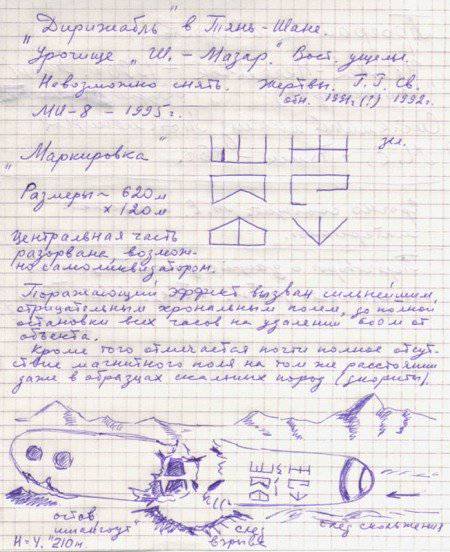 „Дирижабль" в Тянь-Шане.
Урочище „Ш.-Мазар." Вост. ущелье.
Невозможно снять. Жертвы. Г.Г. Св.
отн. 1991г(?) 1992г.
МИ-8 - 1995г.
„Маркировка"
зн.
Размеры ~ 620м
х 120м
Центральная часть
разорвана, возмож-
но самоликвизатором.
Поражающий эффект вызван сильнейшим
отрицательным хрональным полем, до полной
остановки всех часов на удалении 800м от
объекта.
Кроме того отмечается почти полное отсут-
ствие магнитного поля на том же расстоянии
даже в образцах скальных пород (диориты).
остов
шпангоут"
H=У. 210м
след
взрыва
след скольжения